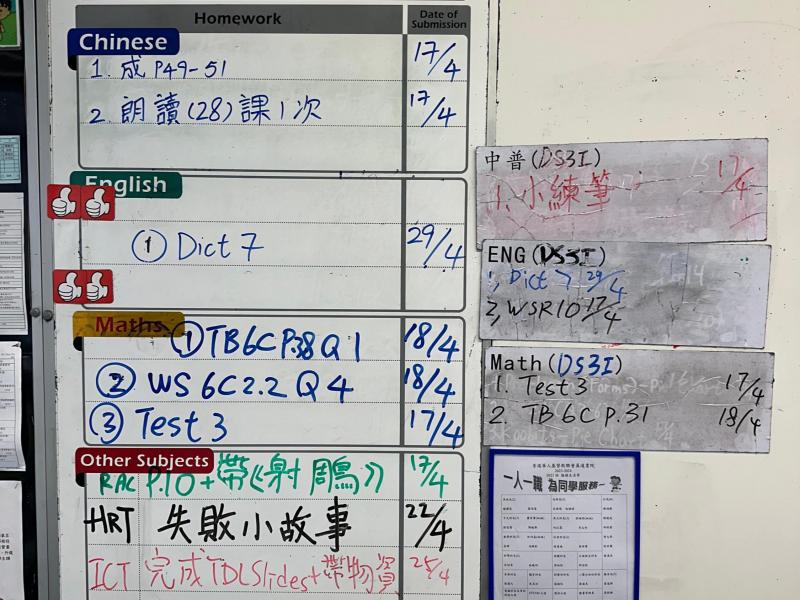 Homework
Date of Submission
Chinese
1. 成 P49-51 17/4
2. 朗讀(28)課1次 17/4
English
① Dict 7 29/4
Maths
① TB6C P.38 Q1 18/4
② WS 6C2.2 Q4 18/4
③ Test 3 17/4
Other Subjects
RAC P.10+帶《射鵰》 17/4
HRT 失敗小故事 22/4
ICT 完成TDLSlides+帶物資 25/4
中普(DS3I)
1. 小練筆 17/4
ENG (DS3I)
1, Dict 7 29/4
2, WSR10 17/4
Math (DS3I)
1. Test 3 17/4
2. TB 6C P.31 18/4
一人一職 為同學服務